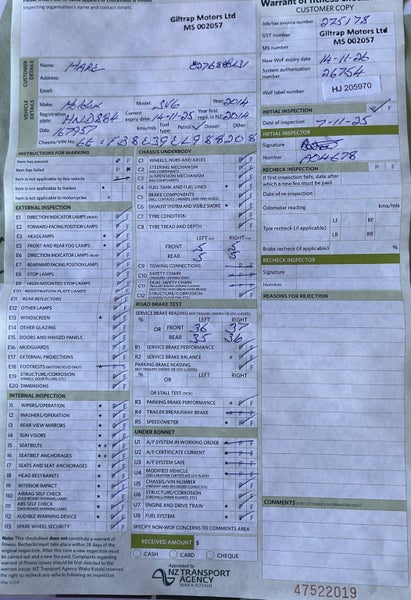 Inspecting organisation's name and contact details
Giltrap Motors Ltd
MS 002057
CUSTOMER DETAILS
Name:
Address:
Email:
VEHICLE DETAILS
Make:
Model: SV6
Year: 2014
Registration plate HND884
Current expiry date: 14-11-25
Year first reg. in NZ 2014
Odo: 167957
km/mi
Fuel type:
Petrol
Diesel
Other
Chassis/VIN No
INSTRUCTIONS FOR MARKING
Item has passed
Item has failed P F
Item is not applicable to this vehicle
Item is not applicable to trailers
Item is not applicable to motorcycles
EXTERNAL INSPECTION
E1 DIRECTION INDICATOR LAMPS (FRONT)
E2 FORWARD FACING POSITION LAMPS
E3 HEADLAMPS
E5 FRONT AND REAR FOG LAMPS
E6 DIRECTION INDICATOR LAMPS (REAR)
E7 REARWARD FACING POSITION LAMPS
E8 STOP LAMPS
E9 HIGH-MOUNTED STOP LAMPS
E10 REGISTRATION PLATE LAMPS
E11 REAR REFLECTORS
E12 OTHER LAMPS
E13 WINDSCREEN
E14 OTHER GLAZING
E15 DOORS AND HINGED PANELS
E16 MUDGUARDS
E17 EXTERNAL PROJECTIONS
E18 FOOTRESTS (MOTORCYCLES ONLY)
E19 STRUCTURE/CORROSION
E20 DIMENSIONS
INTERNAL INSPECTION
I1 WIPERS/OPERATION
I2 WASHERS/OPERATION
I3 REAR VIEW MIRRORS
I4 SUN VISORS
I5 SEATBELTS
I6 SEATBELT ANCHORAGES
I7 SEATS AND SEAT ANCHORAGES
I8 HEAD RESTRAINTS
I9 INTERIOR IMPACT
I10 AIRBAG SELF CHECK
I11 ABS SELF CHECK
I12 AUDIBLE WARNING DEVICE
I13 SPARE WHEEL SECURITY
CHASSIS UNDERBODY
C1 WHEELS, HUBS AND AXLES
C2 STEERING MECHANISM
C3 SUSPENSION MECHANISM
C4 FUEL TANK AND FUEL LINES
C5 BRAKE COMPONENTS
C6 EXHAUST SYSTEM AND VISIBLE SMOKE
C7 TYRE CONDITION
C8 TYRE TREAD AND DEPTH
LEFT RIGHT
FRONT 5 5
REAR 5 5
C9 TOWING CONNECTIONS
C10 SAFETY CHAIN
C11 DUAL SAFETY CHAIN
C12 STRUCTURE/CORROSION
ROAD BRAKE TEST
LEFT RIGHT
OR
FRONT 36 37
REAR 35 36
R1 SERVICE BRAKE PERFORMANCE
R2 SERVICE BRAKE BALANCE
PARKING BRAKE READING
LEFT RIGHT
OR
OR STALL TEST (TICK)
R3 PARKING BRAKE PERFORMANCE
R4 TRAILER BREAKAWAY BRAKE
R5 SPEEDOMETER
UNDER BONNET
U1 A/F SYSTEM IN WORKING ORDER
U2 A/F CERTIFICATE CURRENT
U3 A/F SYSTEM SAFE
U4 MODIFIED VEHICLE
U5 CHASSIS/VIN NUMBER
U6 STRUCTURE/CORROSION
U7 ENGINE AND DRIVE TRAIN
U8 FUEL SYSTEM
SPECIFY NON-WOF CONCERNS TO COMMENTS AREA
RECEIVED AMOUNT $
CASH CARD CHEQUE
Note: This checksheet does not constitute a warrant of fitness. Rechecks must take place within 28 days of the original inspection. After this time a new inspection must be carried out and a new fee paid. Complaints regarding warrant of fitness issues should be first directed to the warrant issuer. NZ Transport Agency Waka Kotahi reserves the right to recheck any vehicle following an inspection
Appointed by
NZ TRANSPORT AGENCY
WAKA KOTAHI
CUSTOMER COPY
Job/tax invoice number 275178
GST number
Giltrap Motors Ltd
MS 002057
MS number
New WoF expiry date 14-11-26
System authorisation number 26754
WoF label number HJ 205970
INITIAL INSPECTION
Date of inspection 7-11-25
INITIAL INSPECTOR
Signature
Number
RECHECK INSPECTION P F
If first inspection fails, date after which a new fee must be paid
Date of re-inspection
Odometer reading kms/mls
Tyre recheck (if applicable) LF RF
LR RR
Brake recheck (if applicable) %
RECHECK INSPECTOR
Signature
Number
REASONS FOR REJECTION
COMMENTS
47522019